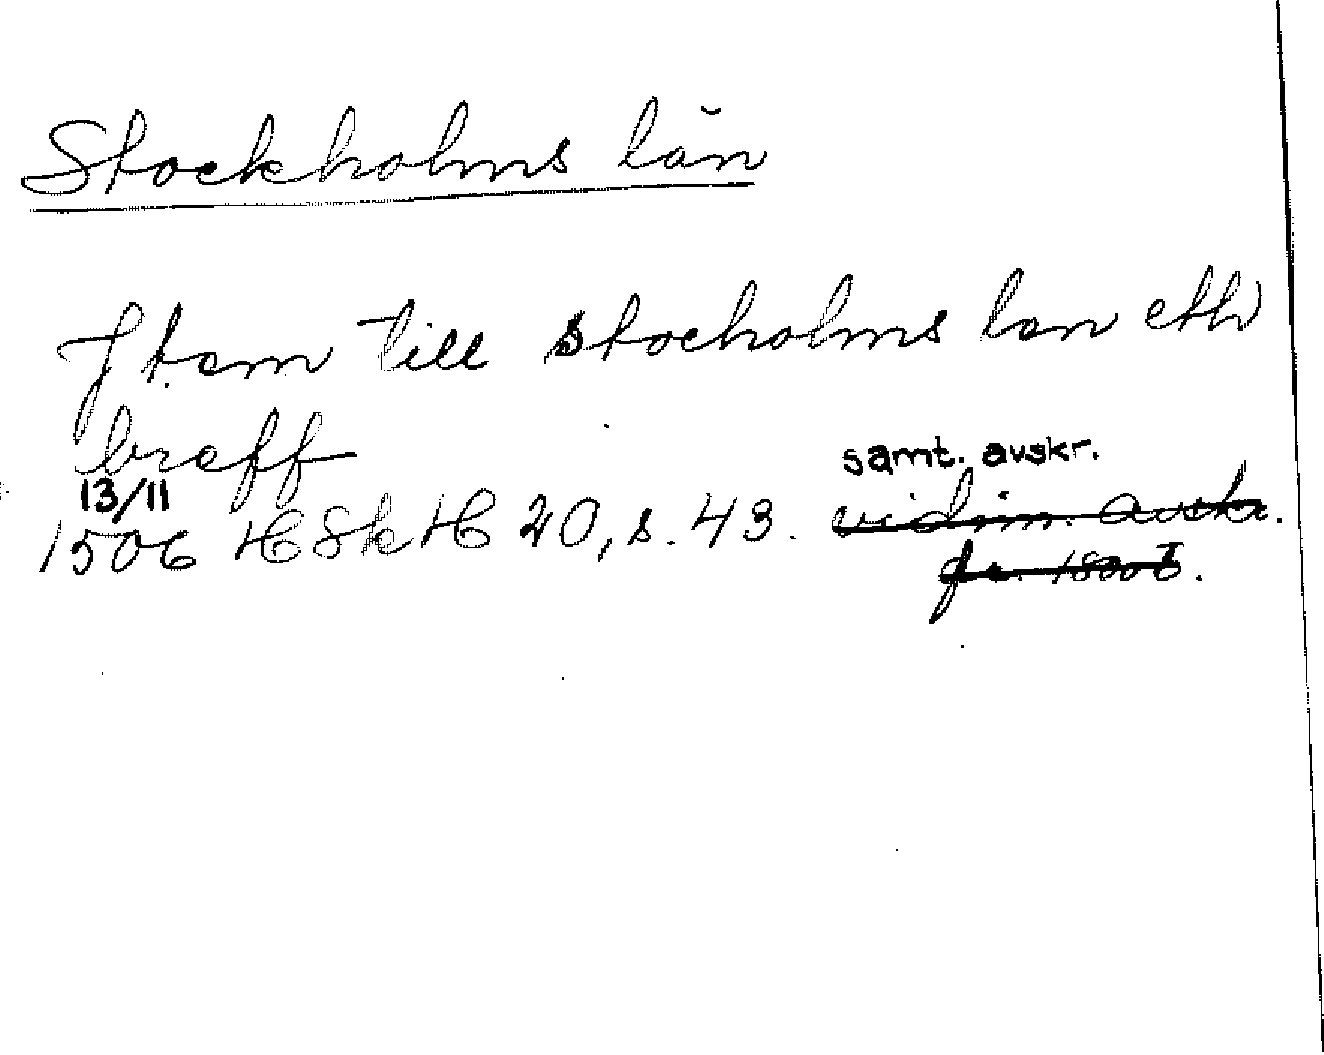 Stockholms län
Jtem till stocholms lan eth
breff
samt. avskr.
13/11
1506 HSkH 20, s. 43. vidim. avskr.
fr. 1800t.